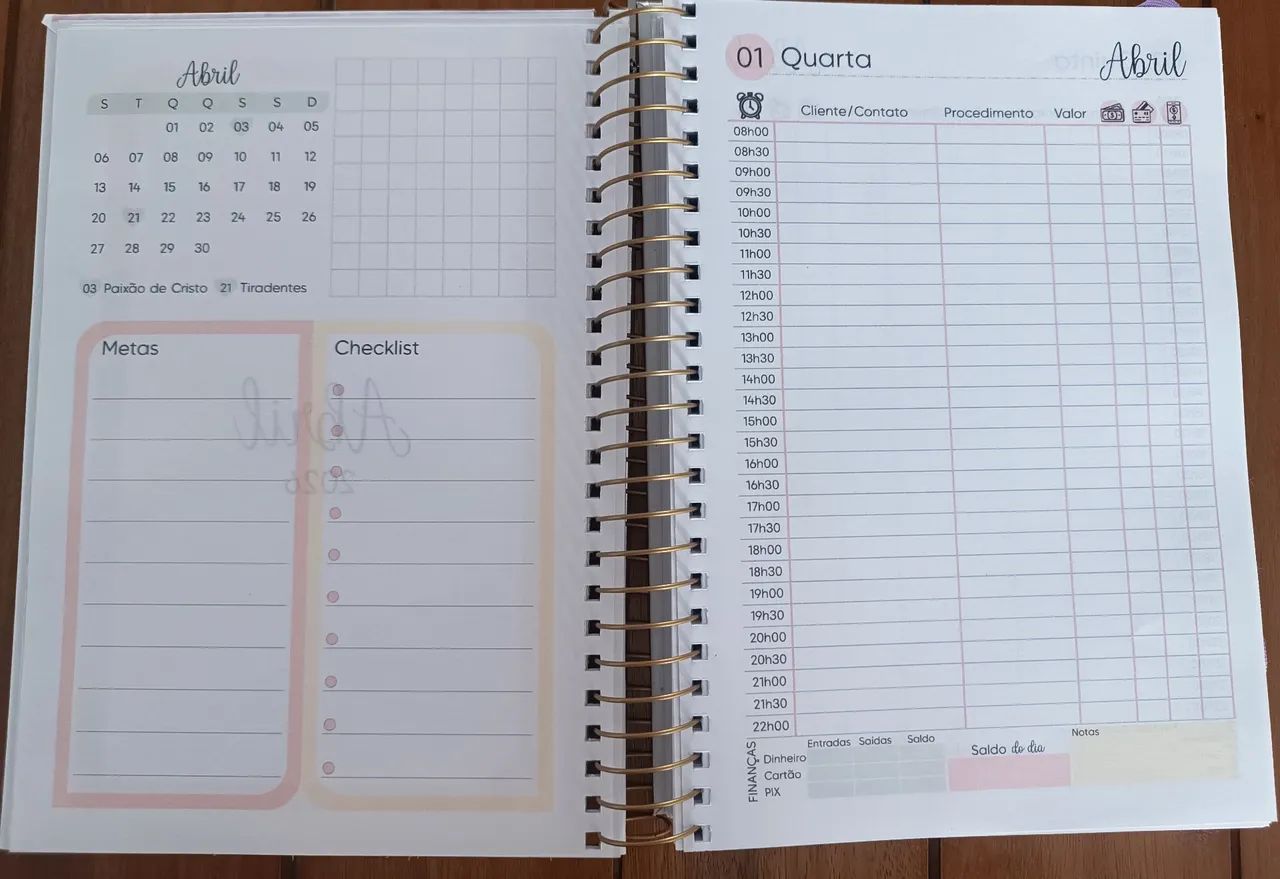 Abril
S T Q Q S S D
01 02 03 04 05
06 07 08 09 10 11 12
13 14 15 16 17 18 19
20 21 22 23 24 25 26
27 28 29 30
03 Paixão de Cristo 21 Tiradentes
Metas
Checklist
Abril
2026
01 Quarta
Abril
Cliente/Contato Procedimento Valor
08h00
08h30
09h00
09h30
10h00
10h30
11h00
11h30
12h00
12h30
13h00
13h30
14h00
14h30
15h00
15h30
16h00
16h30
17h00
17h30
18h00
18h30
19h00
19h30
20h00
20h30
21h00
21h30
22h00
FINANÇAS
Entradas Saídas Saldo
Dinheiro
Cartão
PIX
Saldo do dia
Notas